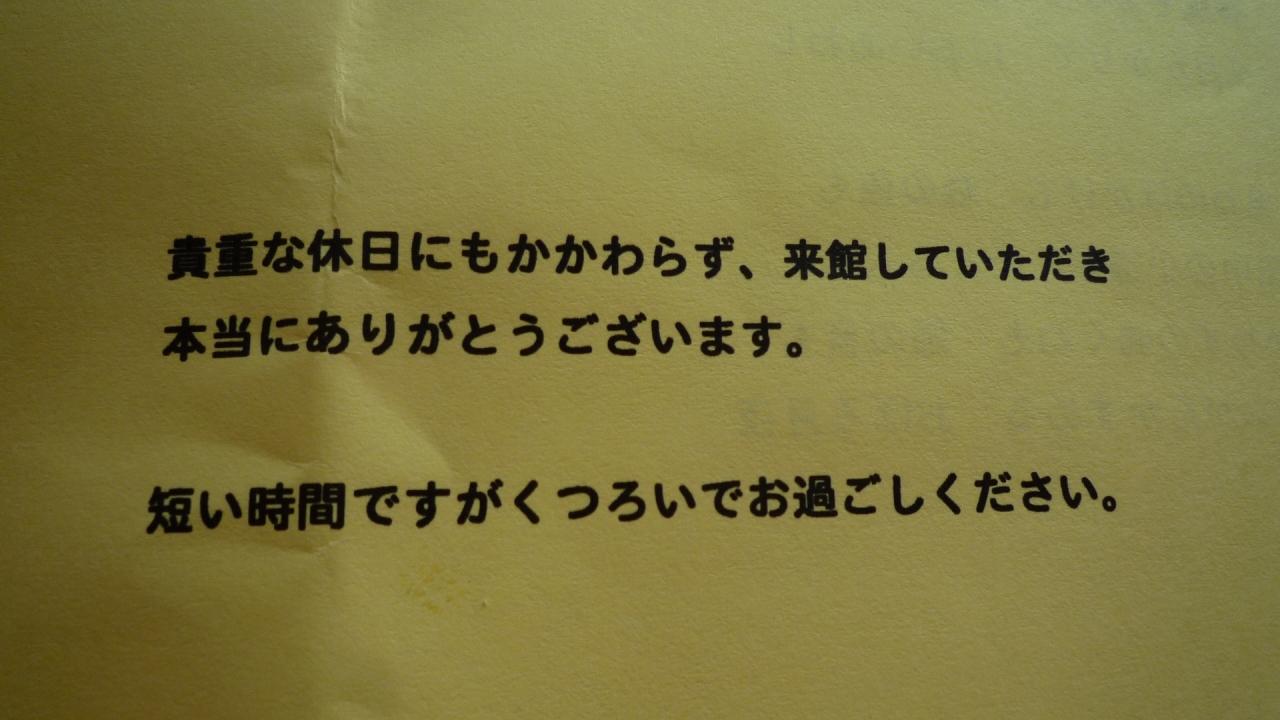 貴重な休日にもかかわらず、来館していただき
本当にありがとうございます。
短い時間ですがくつろいでお過ごしください。